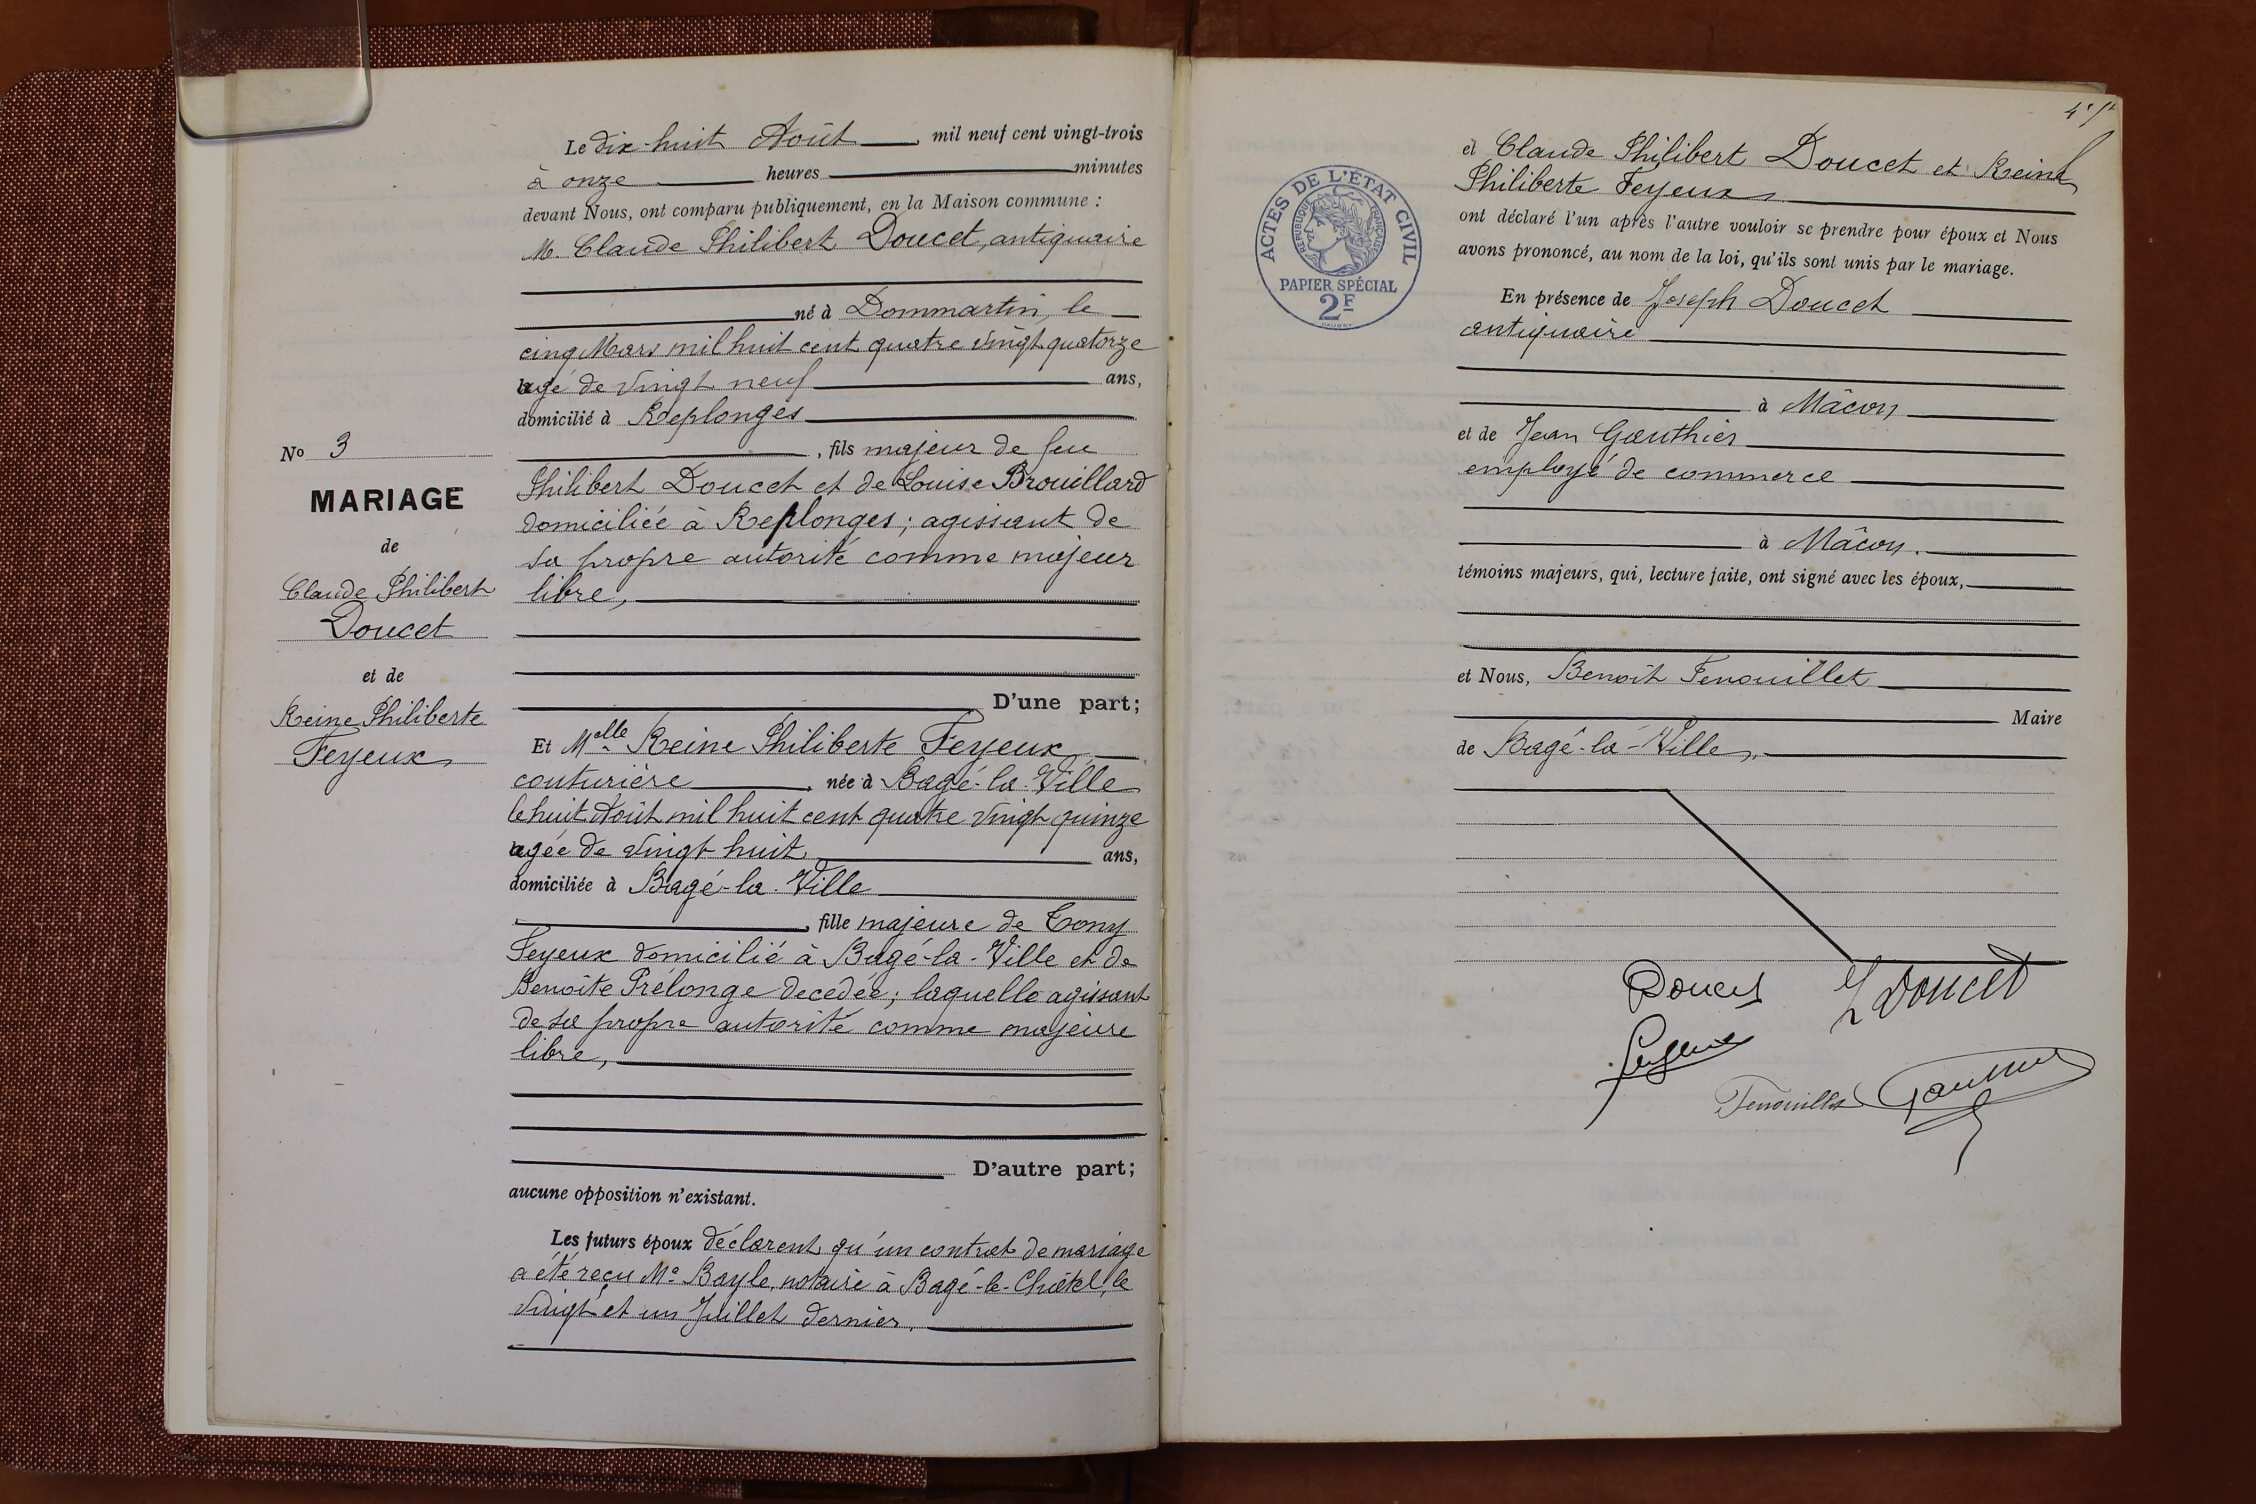 Le dix-huit Août mil neuf cent vingt-trois
à onze heures minutes
devant Nous, ont comparu publiquement, en la Maison commune :
M. Claude Philibert Doucet, antiquaire
né à Dommartin, le
cinq Mars mil huit cent quatre vingt quatorze
âgé de vingt neuf ans,
domicilié à Replonges
, fils majeur de feu
Philibert Doucet et de Louise Brouillard
domiciliée à Replonges ; agissant de
sa propre autorité comme majeur
libre,
D'une part;
No 3
MARIAGE
de
Claude Philibert
Doucet
et de
Reine Philiberte
Feyeux
Et Melle Reine Philiberte Feyeux,
couturière, née à Bagé-la-Ville
le huit Août mil huit cent quatre vingt quinze
âgée de vingt huit ans,
domiciliée à Bagé-la-Ville
, fille majeure de Tony
Feyeux domicilié à Bagé-la-Ville et de
Benoîte Prélonge decédée ; laquelle agissant
de sa propre autorité comme majeure
libre,
D'autre part;
aucune opposition n'existant.
Les futurs époux déclarent qu'un contrat de mariage
a été reçu Me Bayle, notaire à Bagé-le-Châtel, le
vingt et un Juillet dernier.
et Claude Philibert Doucet et Reine
Philiberte Feyeux
ont déclaré l'un après l'autre vouloir se prendre pour époux et Nous
avons prononcé, au nom de la loi, qu'ils sont unis par le mariage.
En présence de Joseph Doucet
antiquaire
à Mâcon
et de Jean Gauthier
employé de commerce
à Mâcon.
témoins majeurs, qui, lecture faite, ont signé avec les époux,
et Nous, Benoît Fenouillet
Maire
de Bagé-la-Ville.
ACTES DE L'ÉTAT CIVIL
RÉPUBLIQUE FRANÇAISE
PAPIER SPÉCIAL
2F
Doucet
Doucet
Fenouillet